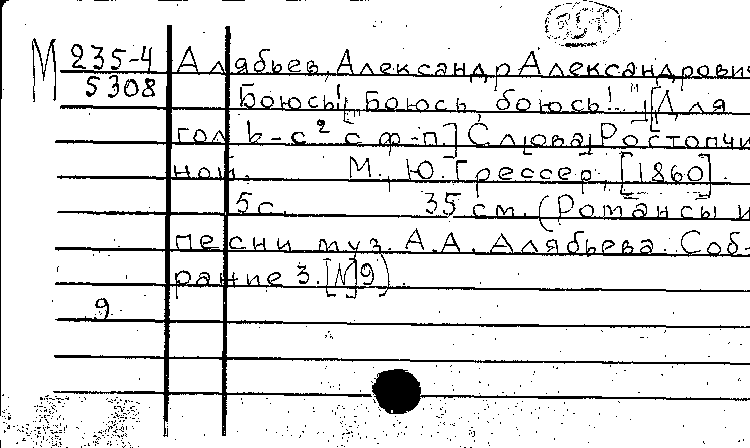 М 235-4 Алябьев, Александр Александрович
5308 Боюсь! ["Боюсь, боюсь!.."] [Для
гол. b-c² с ф-п.] Сл[ова] Ростопчи
ной. М., Ю. Грессер, [1860].
5 с. 35 см. (Романсы и
песни муз. А. А. Алябьева. Соб-
рание 3. [N] 9).
9